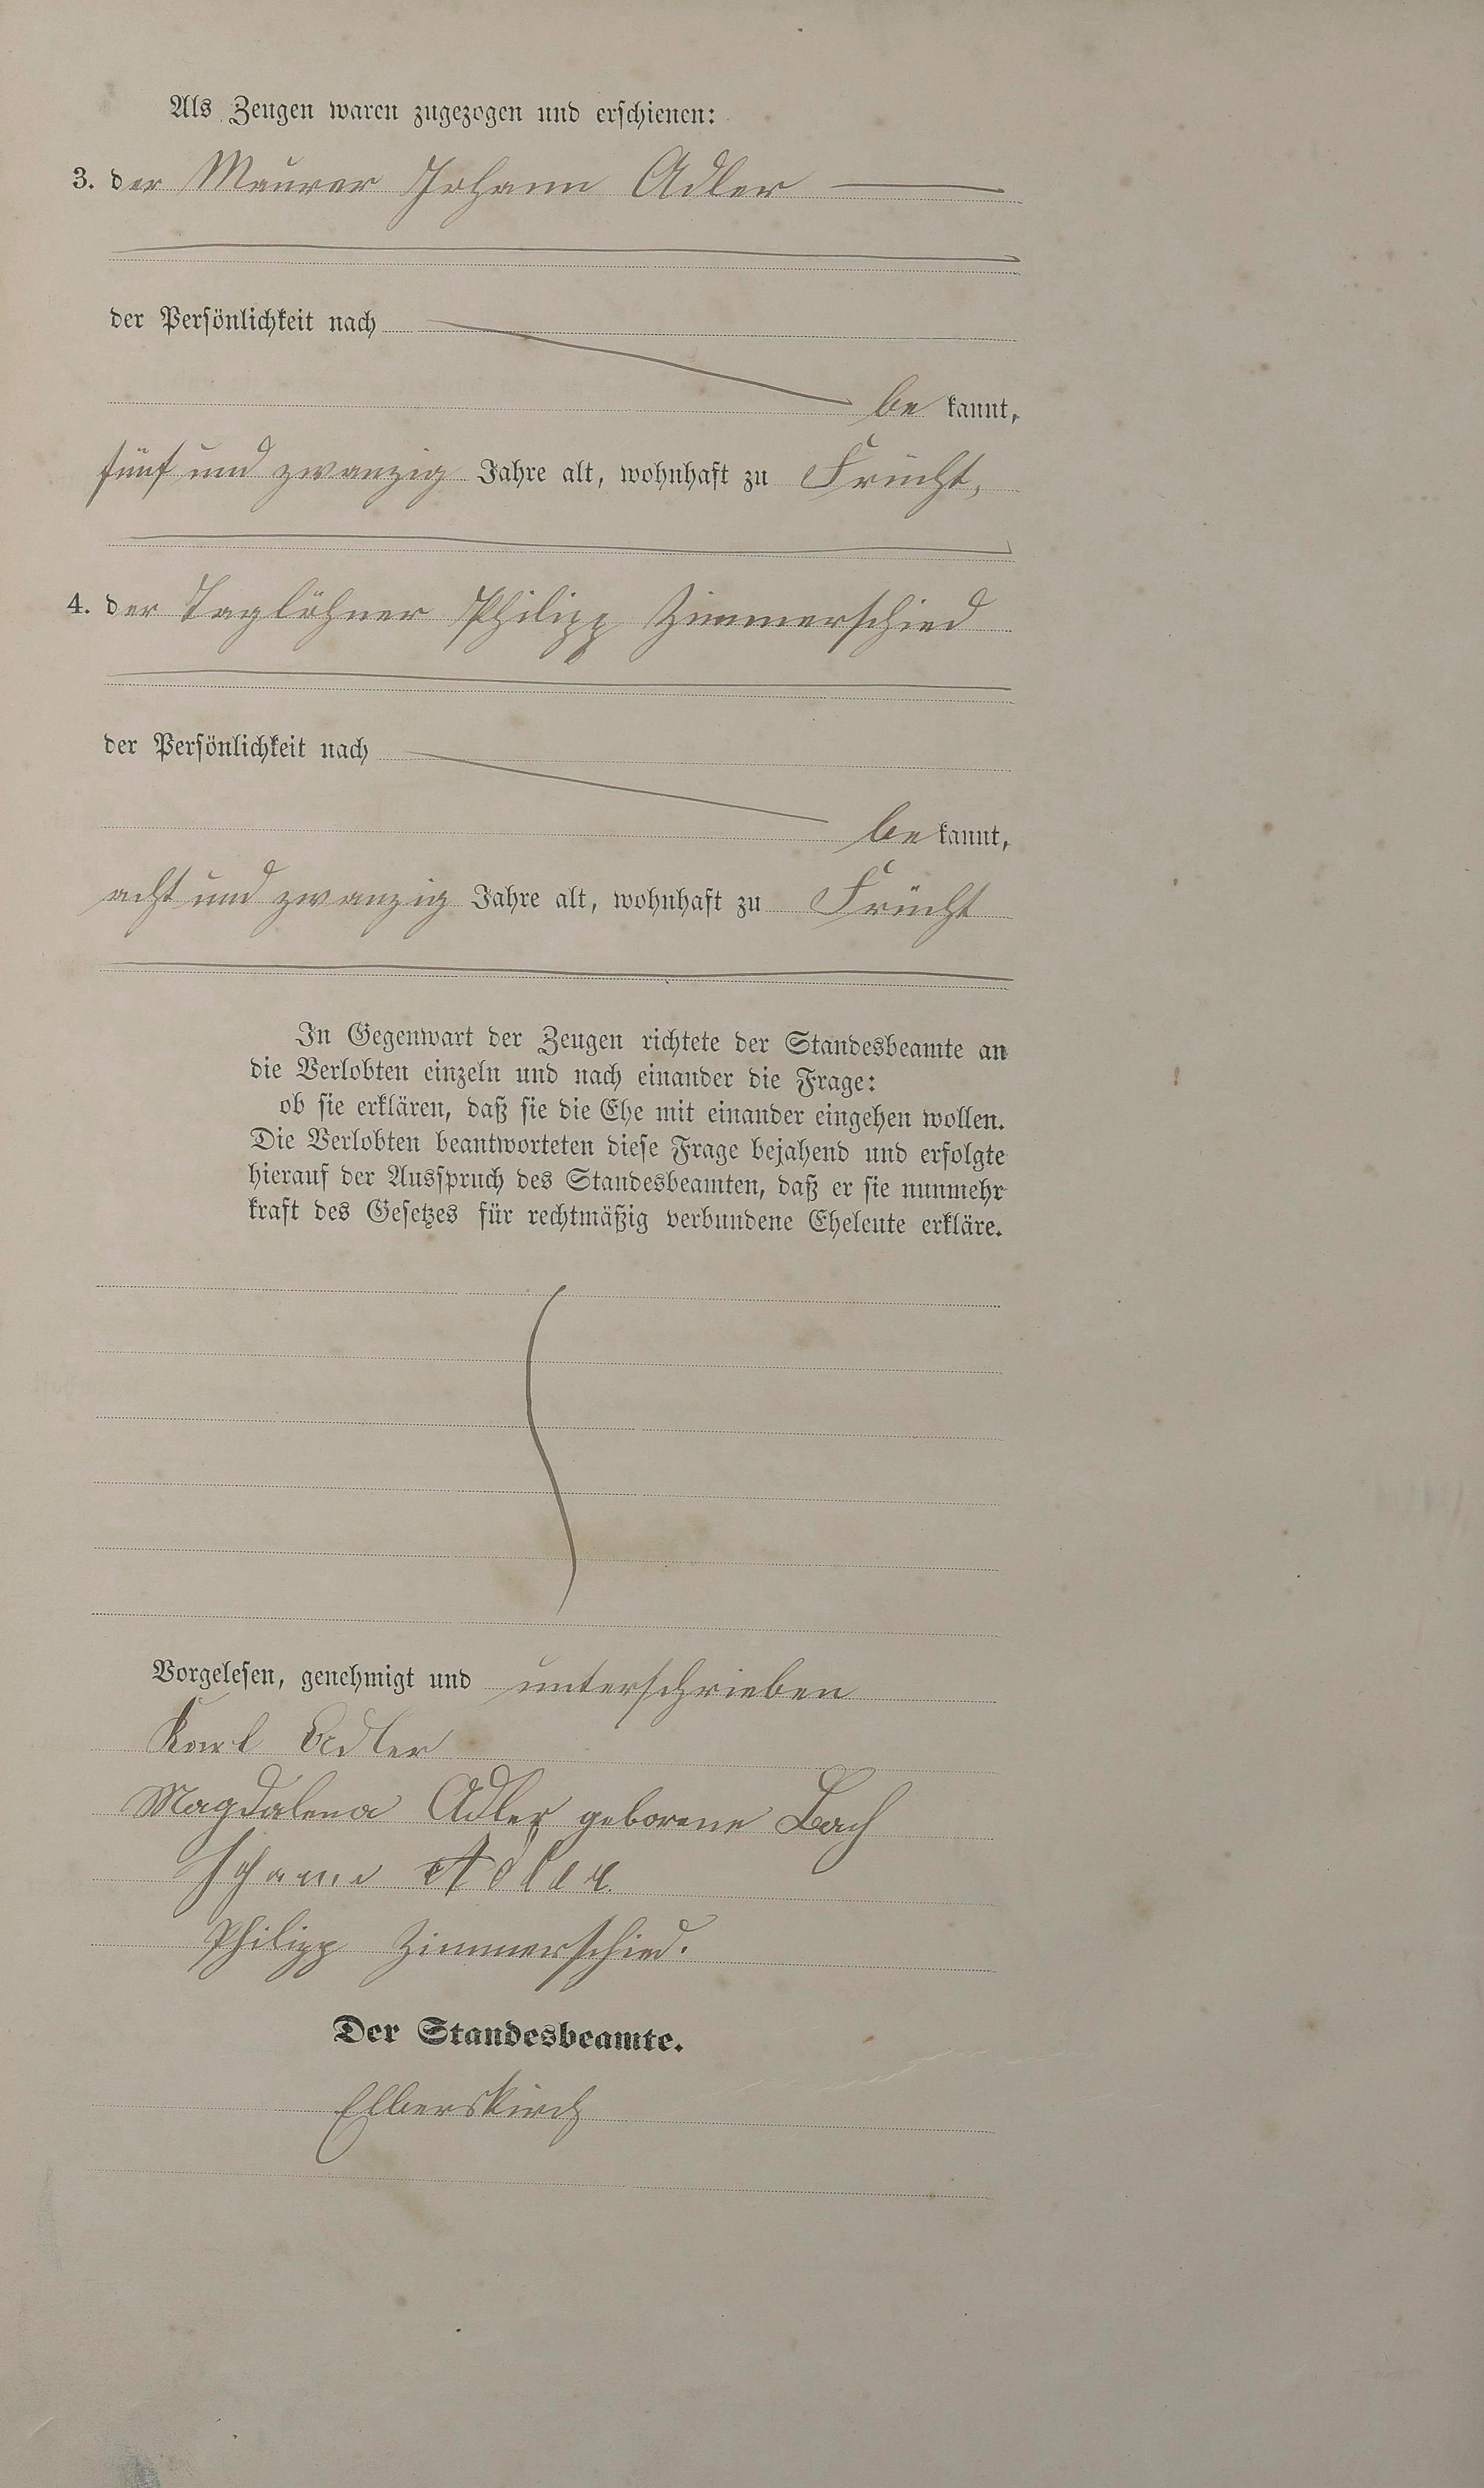 Als Zeugen waren zugezogen und erschienen:
3. der Maurer Johann Adler
der Persönlichkeit nach
be kannt,
fünf und zwanzig Jahre alt, wohnhaft zu Frücht,
4. der Taglöhner Philipp Zimmerschied
der Persönlichkeit nach
be kannt,
acht und zwanzig Jahre alt, wohnhaft zu Frücht
In Gegenwart der Zeugen richtete der Standesbeamte an
die Verlobten einzeln und nach einander die Frage:
ob sie erklären, daß sie die Ehe mit einander eingehen wollen.
Die Verlobten beantworteten diese Frage bejahend und erfolgte
hierauf der Ausspruch des Standesbeamten, daß er sie nunmehr
kraft des Gesetzes für rechtmäßig verbundene Eheleute erkläre.
Vorgelesen, genehmigt und unterschrieben
Karl Adler
Magdalena Adler geborene Bach
Johann Adler
Philipp Zimmerschied.
Der Standesbeamte.
Elberskirch